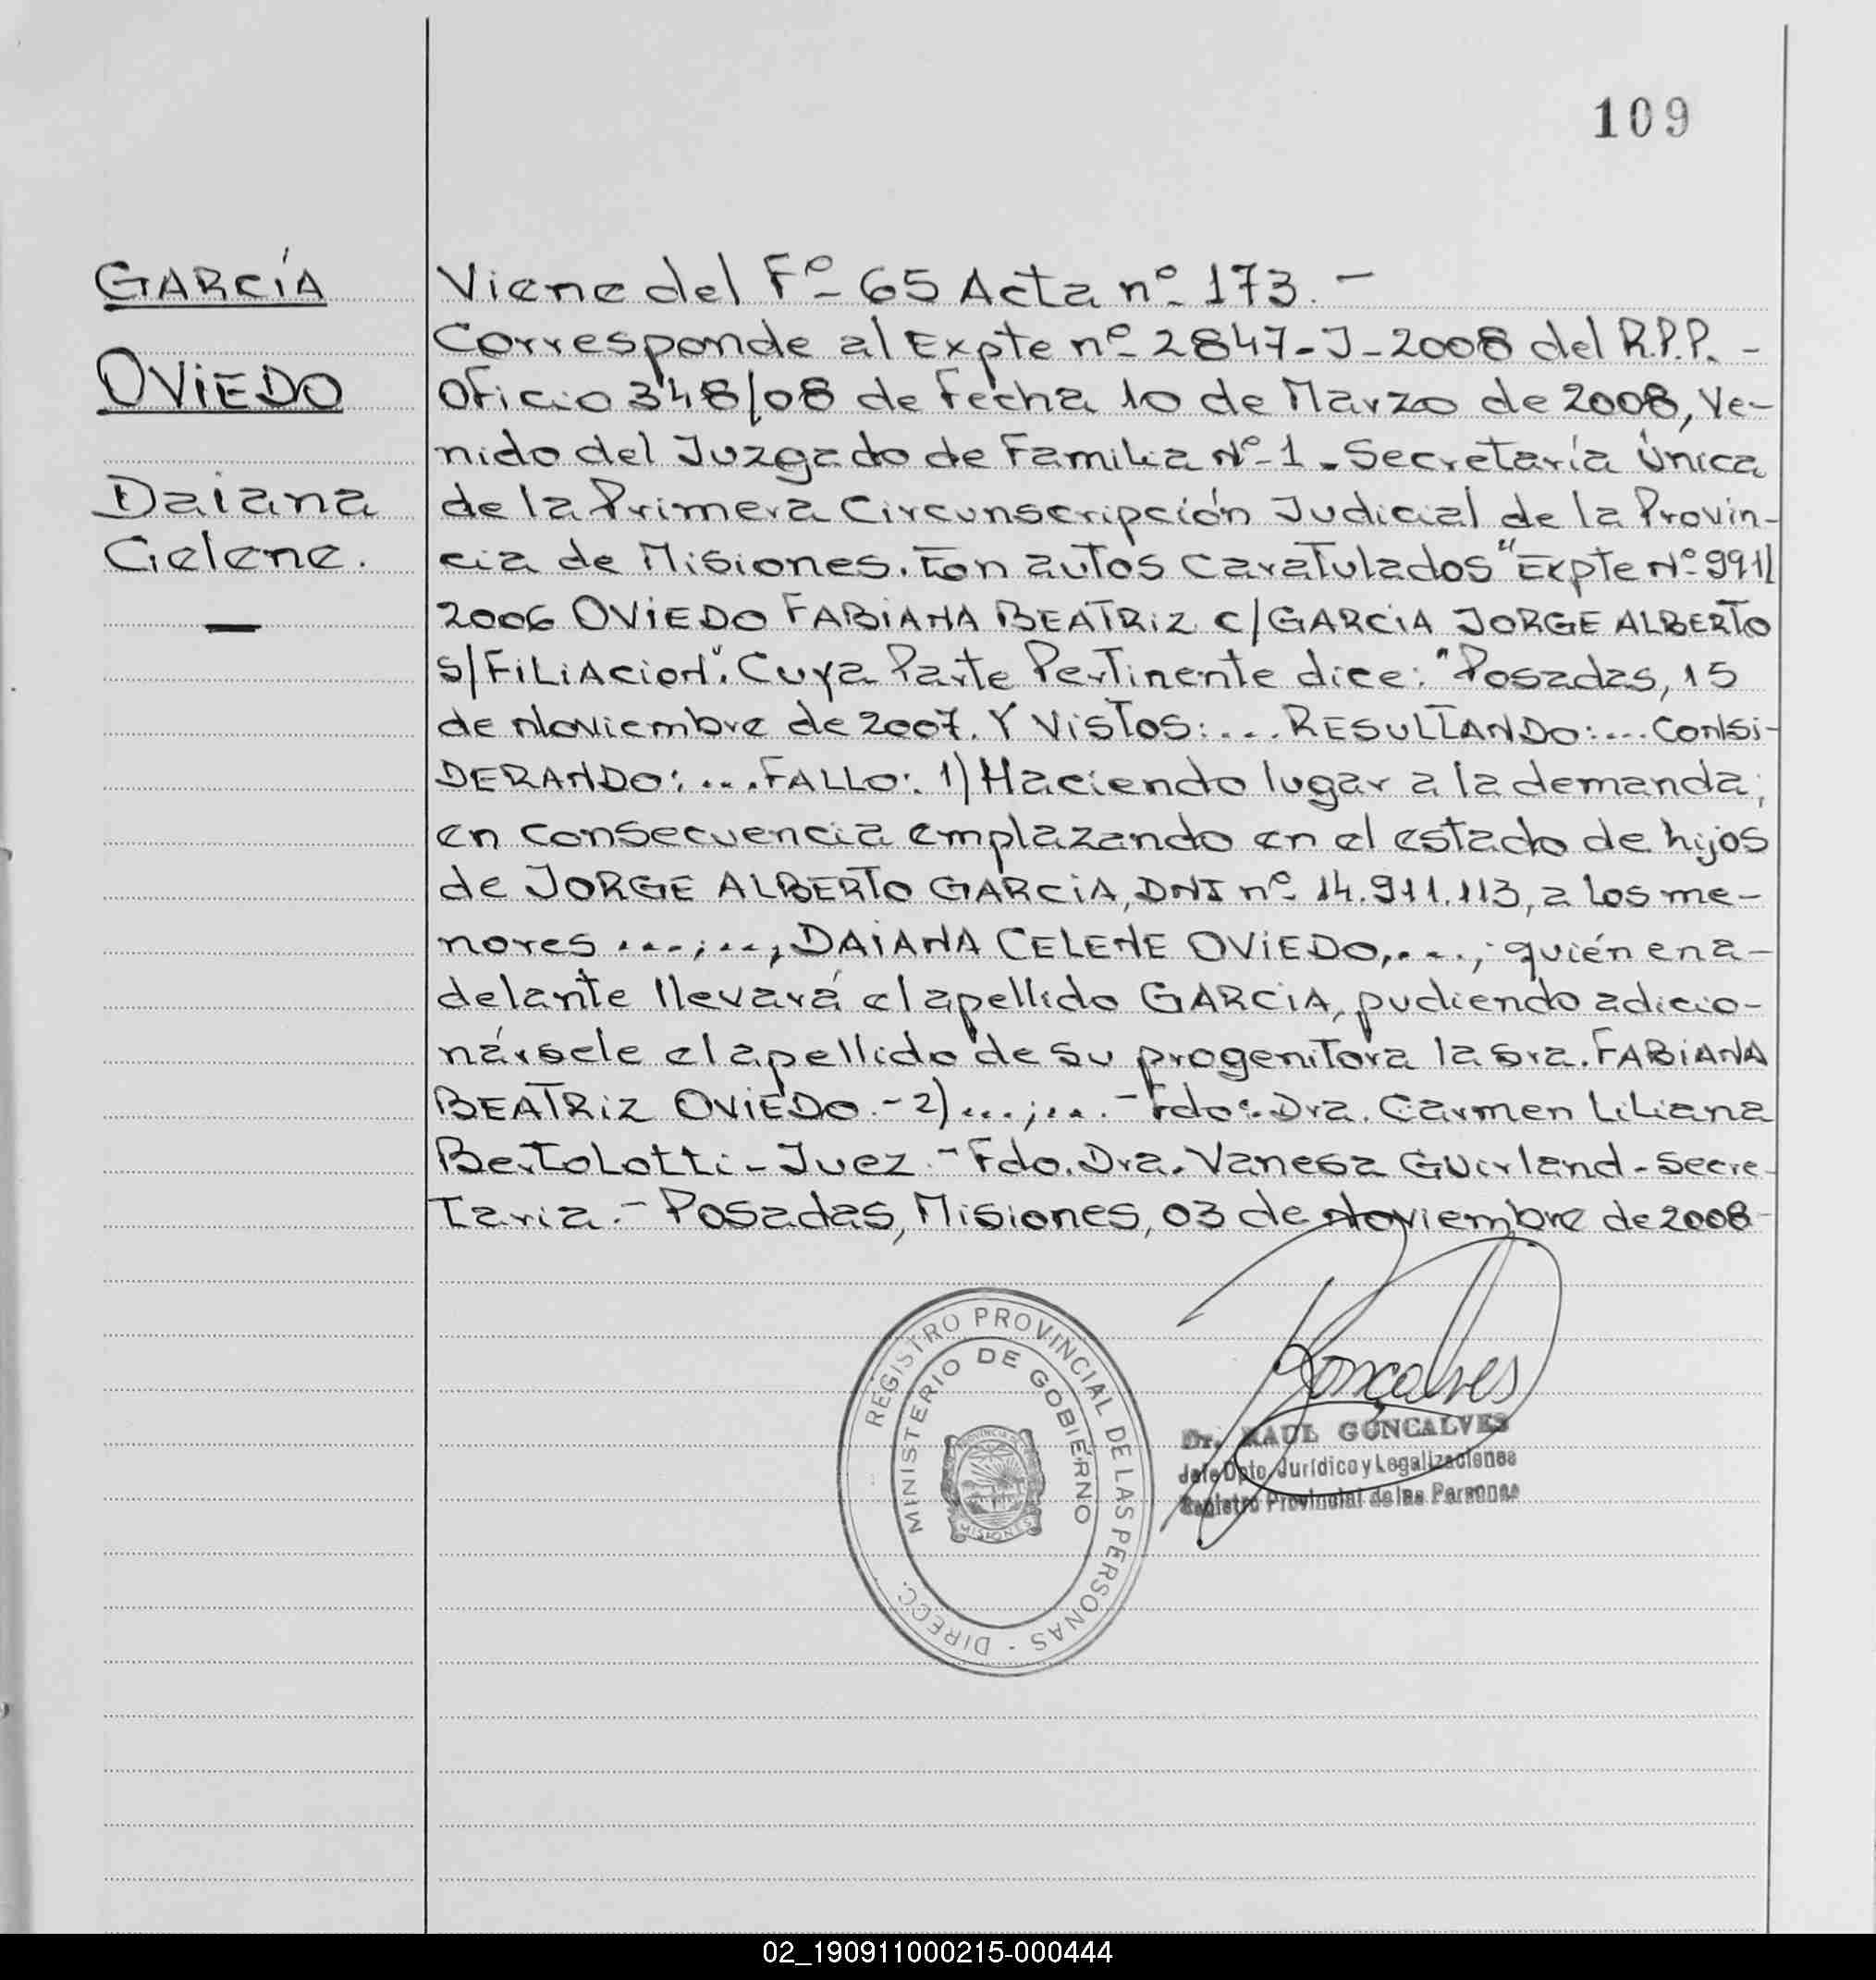 109
GARCÍA
OVIEDO
Daiana
Celene.
Viene del Fº 65 Acta nº 173. -
Corresponde al Expte nº 2847-J-2008 del R.P.P. -
Oficio 348/08 de fecha 10 de Marzo de 2008, Ve-
nido del Juzgado de Familia Nº 1 - Secretaría Única
de la Primera Circunscripción Judicial de la Provin-
cia de Misiones. En autos caratulados "Expte Nº 991/
2006 OVIEDO FABIANA BEATRIZ C/GARCIA JORGE ALBERTO
S/FILIACION". Cuya Parte Pertinente dice: "Posadas, 15
de Noviembre de 2007. Y VISTOS: ... RESULTANDO: ... CONSI-
DERANDO: ... FALLO: 1) Haciendo lugar a la demanda;
en consecuencia emplazando en el estado de hijos
de JORGE ALBERTO GARCIA, DNI nº 14.911.113, a los me-
nores ...;..., DAIANA CELENE OVIEDO,...; quién en a-
delante llevará el apellido GARCIA, pudiendo adicio-
nársele el apellido de su progenitora la sra. FABIANA
BEATRIZ OVIEDO.- 2) ...;... .- Fdo: Dra. Carmen Liliana
Bertolotti - Juez.- Fdo. Dra. Vanesa Guirland - Secre-
taria.- Posadas, Misiones, 03 de Noviembre de 2008-
REGISTRO PROVINCIAL DE LAS PERSONAS - DIRECC.
MINISTERIO DE GOBIERNO
PROVINCIA DE
MISIONES
Gonçalves
Dr. RAUL GONCALVES
Jefe Dpto. Jurídico y Legalizaciones
Registro Provincial de las Personas
02_190911000215-000444